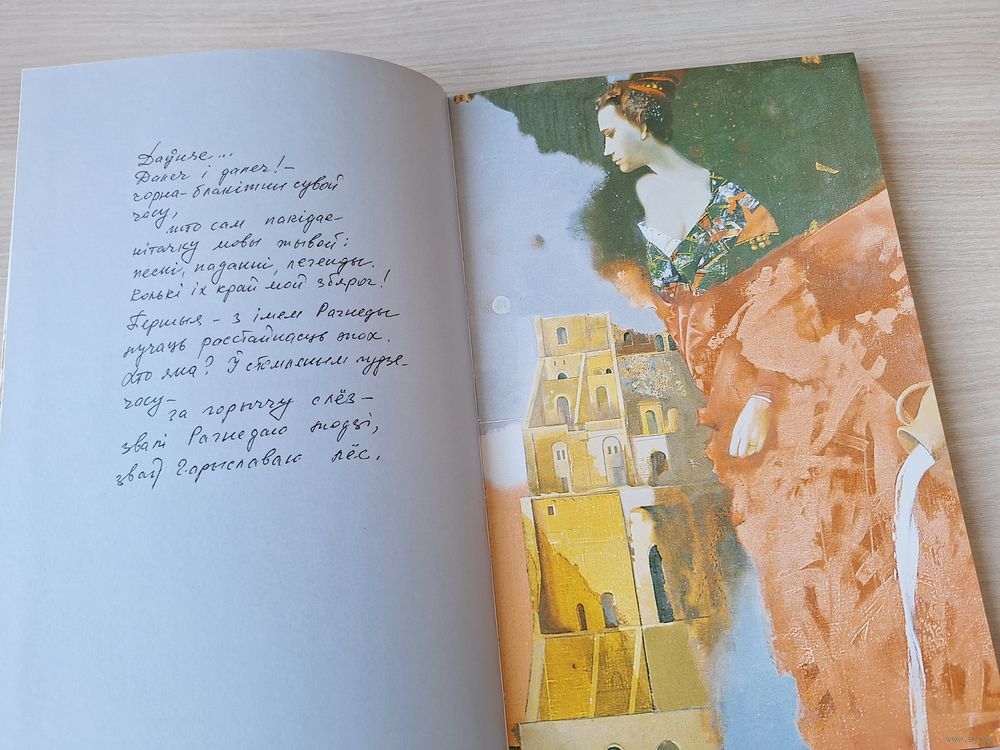 Даўняе...
Далеч і далеч! –
чорна-блакітны сувой
часу,
што сам пакідае
нітачку мовы жывой:
песні, паданні, легенды.
Колькі іх край мой збярог!
Першыя – з імем Рагнеды
лучаць расстайнасць эпох.
Хто яна? Ў стомленым гудзе
часу –
за горыччу слёз –
звалі Рагнедаю людзі,
зваў Гарыславаю лёс.